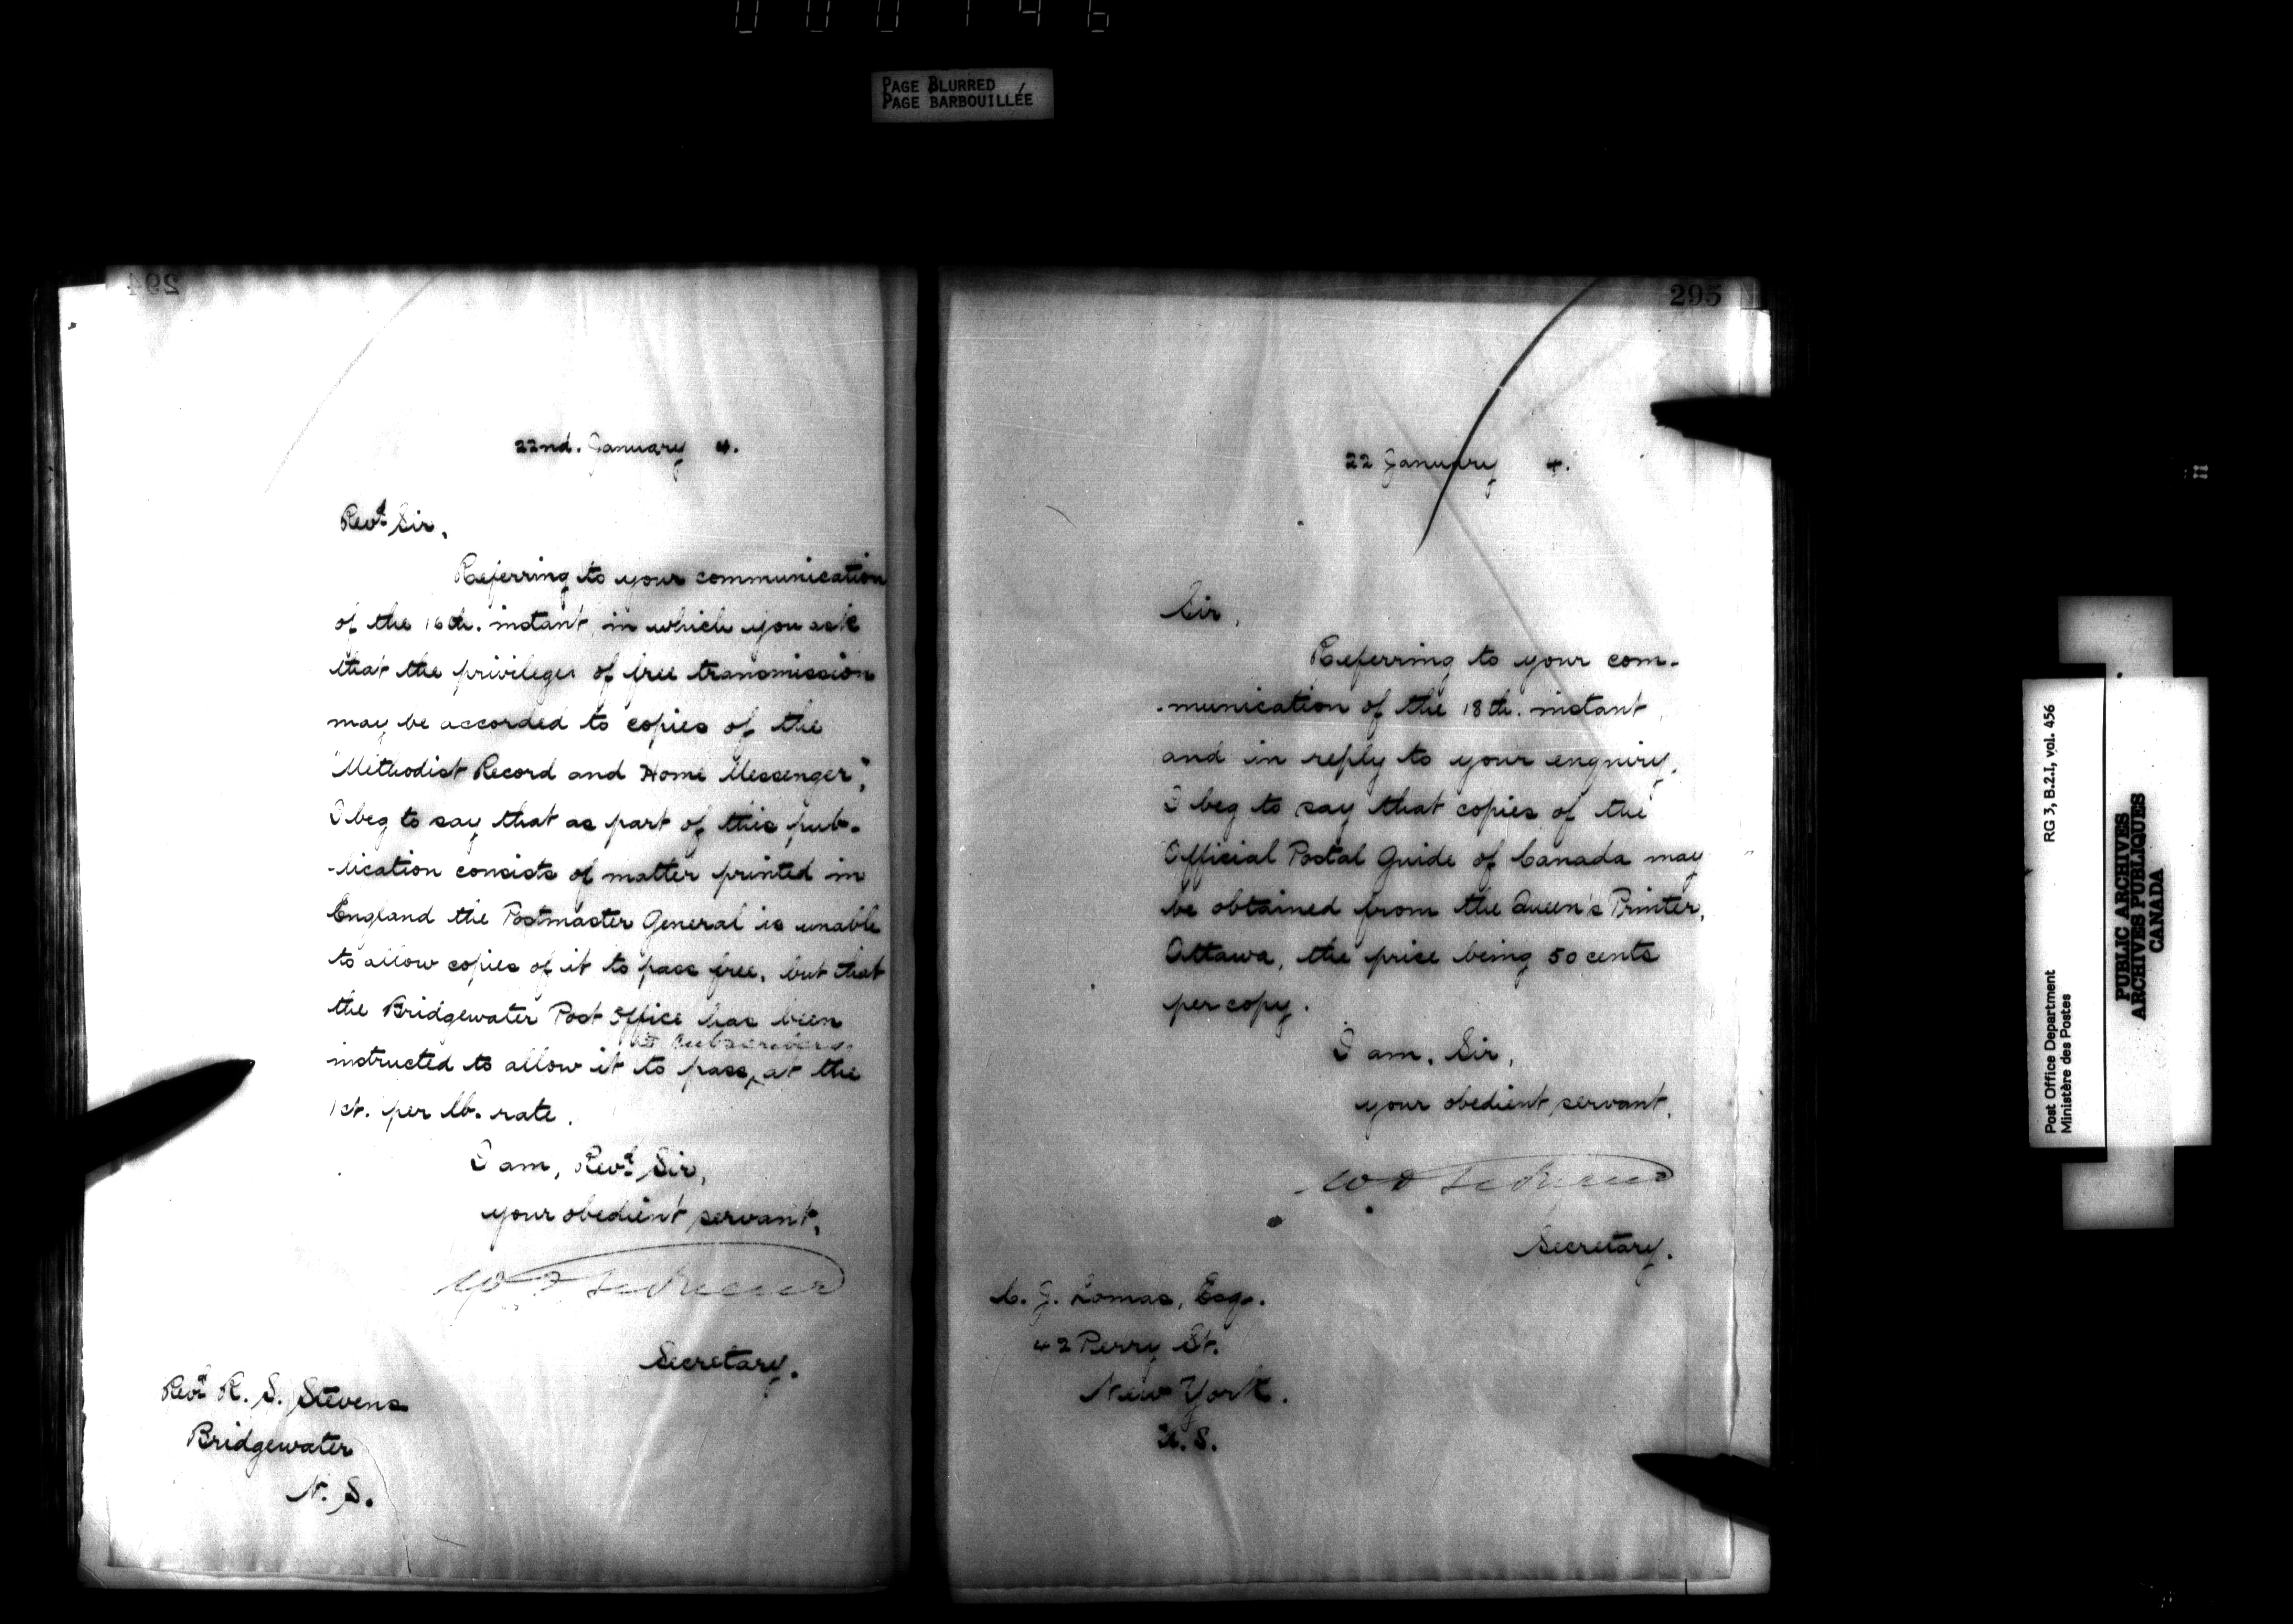 000146
PAGE BLURRED
PAGE BARBOUILLÉE
294
22nd. January 4.
Revd. Sir,
Referring to your communication
of the 16th. instant, in which you ask
that the privileges of free transmission
may be accorded to copies of the
"Methodist Record and Home Messenger",
I beg to say that as part of this pub-
-lication consists of matter printed in
England the Postmaster General is unable
to allow copies of it to pass free, but that
the Bridgewater Post Office has been
to subscribers
instructed to allow it to pass ‸ at the
1ct. per lb. rate.
I am, Revd. Sir,
your obedient servant,
Secretary.
Revd. R. S. Stevens
Bridgewater
N. S.
295
22 January 4.
Sir,
Referring to your com-
-munication of the 18th. instant,
and in reply to your enquiry,
I beg to say that copies of the
Official Postal Guide of Canada may
be obtained from the Queen's Printer,
Ottawa, the price being 50 cents
per copy.
I am, Sir,
your obedient servant,
Secretary.
C. J. Lomas, Esq.
42 Perry St.
New York.
U. S.
Post Office Department RG 3, B.2.I, vol. 456
Ministère des Postes
PUBLIC ARCHIVES
ARCHIVES PUBLIQUES
CANADA